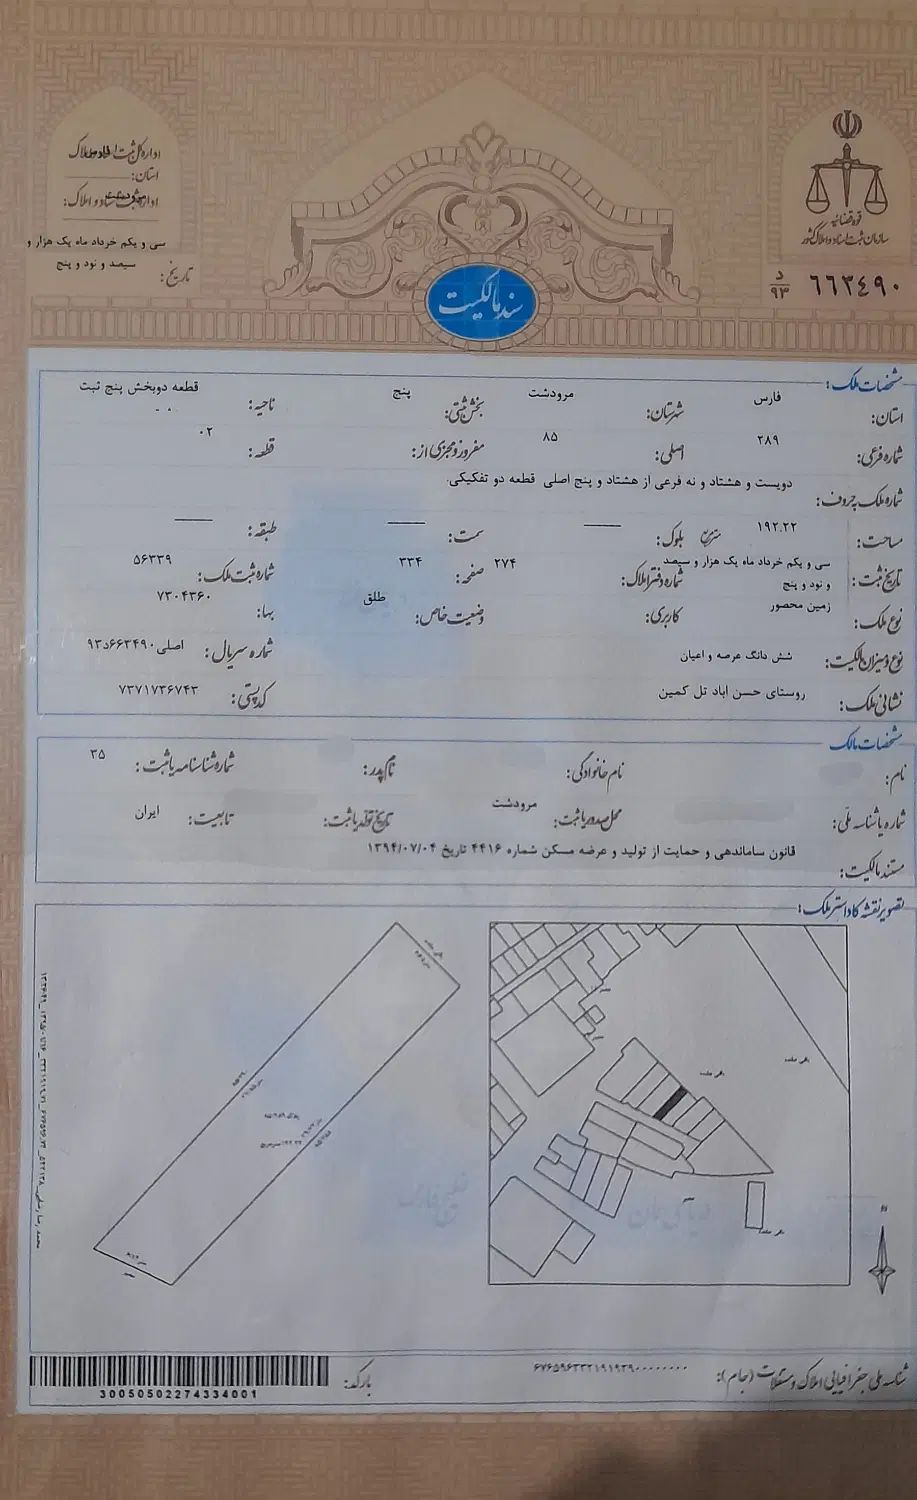 اداره کل ثبت اسناد و املاک
استان: فارس
اداره ثبت اسناد و املاک: مرودشت
تاریخ: سی و یکم خرداد ماه یک هزار و سیصد و نود و پنج
قوه قضائیه
سازمان ثبت اسناد و املاک کشور
۶۶۳۴۹۰ د ۹۳
سند مالکیت
مشخصات ملک:
استان: فارس شهرستان: مرودشت بخش ثبتی: پنج ناحیه: قطعه دوبخش پنج ثبت
شماره فرعی: ۲۸۹ اصلی: ۸۵ مفروز و مجزی از: قطعه: ۰۲
شماره ملک به حروف: دویست و هشتاد و نه فرعی از هشتاد و پنج اصلی قطعه دو تفکیکی.
مساحت: ۱۹۲.۲۲ متر مربع بلوک: —— سمت: —— طبقه: ——
تاریخ ثبت: سی و یکم خرداد ماه یک هزار و سیصد و نود و پنج شماره دفتر املاک: ۲۷۴ صفحه: ۳۳۴ شماره ثبت ملک: ۵۶۳۳۹
نوع ملک: زمین محصور کاربری: وضعیت خاص: طلق بها: ۷۳۰۴۳۶۰
نوع و میزان مالکیت: شش دانگ عرصه و اعیان شماره سریال: اصلی ۶۶۳۴۹۰د۹۳
نشانی ملک: روستای حسن اباد تل کمین کد پستی: ۷۳۷۱۷۳۶۷۴۳
مشخصات مالک
نام: نام خانوادگی: نام پدر: شماره شناسنامه یا ثبت: ۳۵
شماره یا شناسه ملی: محل صدور یا ثبت: مرودشت تاریخ تولد یا ثبت: تابعیت: ایران
مستند مالکیت: قانون ساماندهی و حمایت از تولید و عرضه مسکن شماره ۴۴۱۶ تاریخ ۱۳۹۴/۰۷/۰۴
تصویر نقشه کاداستر ملک:
شناسه ملی جغرافیایی املاک و مستغلات (جام): ۶۷۶۵۹۶۳۳۲۱۹۱۹۳۹۰۰۰۰۰۰۰۰
بارکد:
30050502274334001